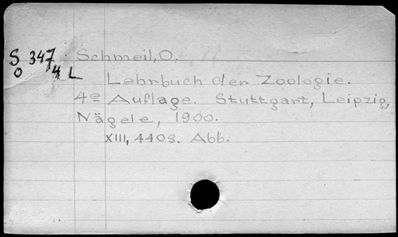 S 347 Schmeil, O.
O 4 L Lehrbuch der Zoologie.
4e Auflage. Stuttgart, Leipzig,
Nägele, 1900.
XIII, 440 S. Abb.